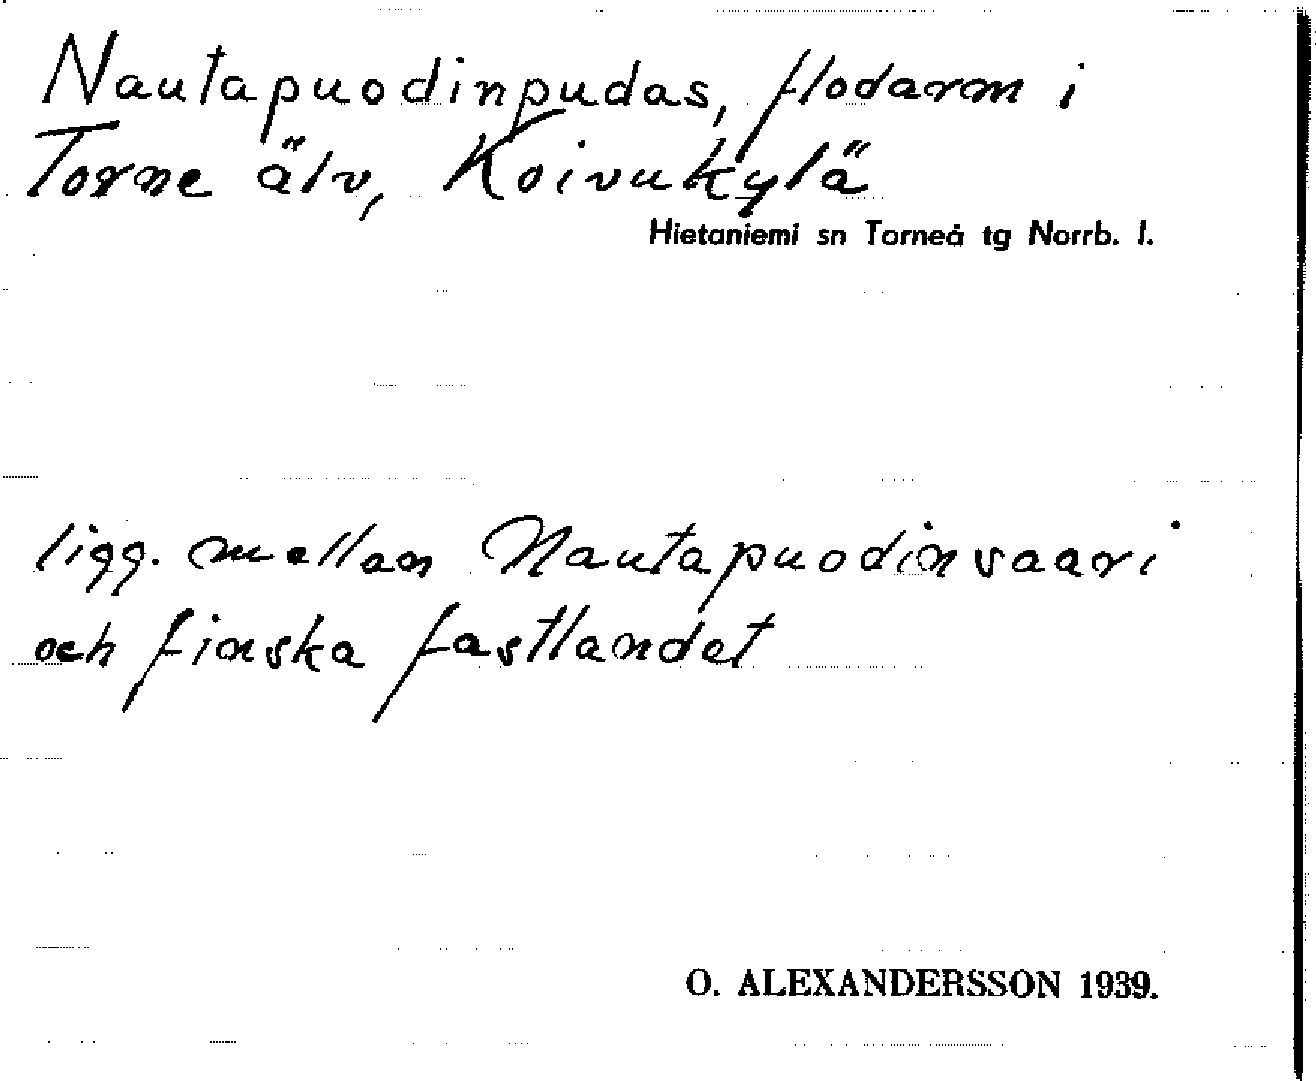 Nautapuodinpudas, flodarm i
Torne älv, Koivukylä
Hietaniemi sn Torneå tg Norrb. l.
ligg. mellan Nautapuodinsaari
och finska fastlandet
O. ALEXANDERSSON 1939.